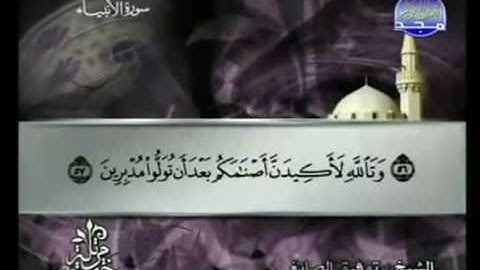 سورة الأنبياء
المجد
٥٦ وَتَاللَّهِ لَأَكِيدَنَّ أَصْنَامَكُم بَعْدَ أَن تُوَلُّوا۟ مُدْبِرِينَ ٥٧
الشيخ توفيق الصايغ